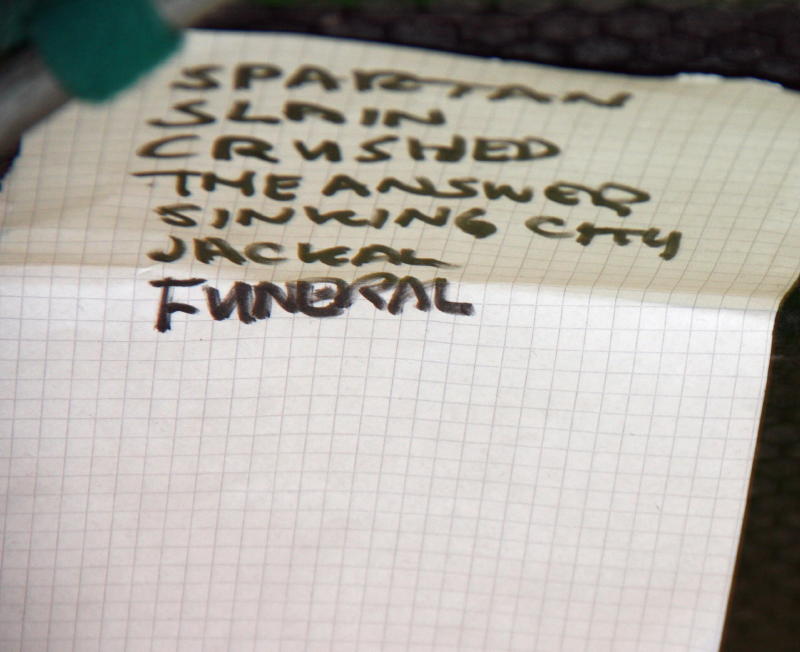 SPARTAN
SLAIN
CRUSHED
THE ANSWER
SINKING CITY
JACKAL
FUNERAL